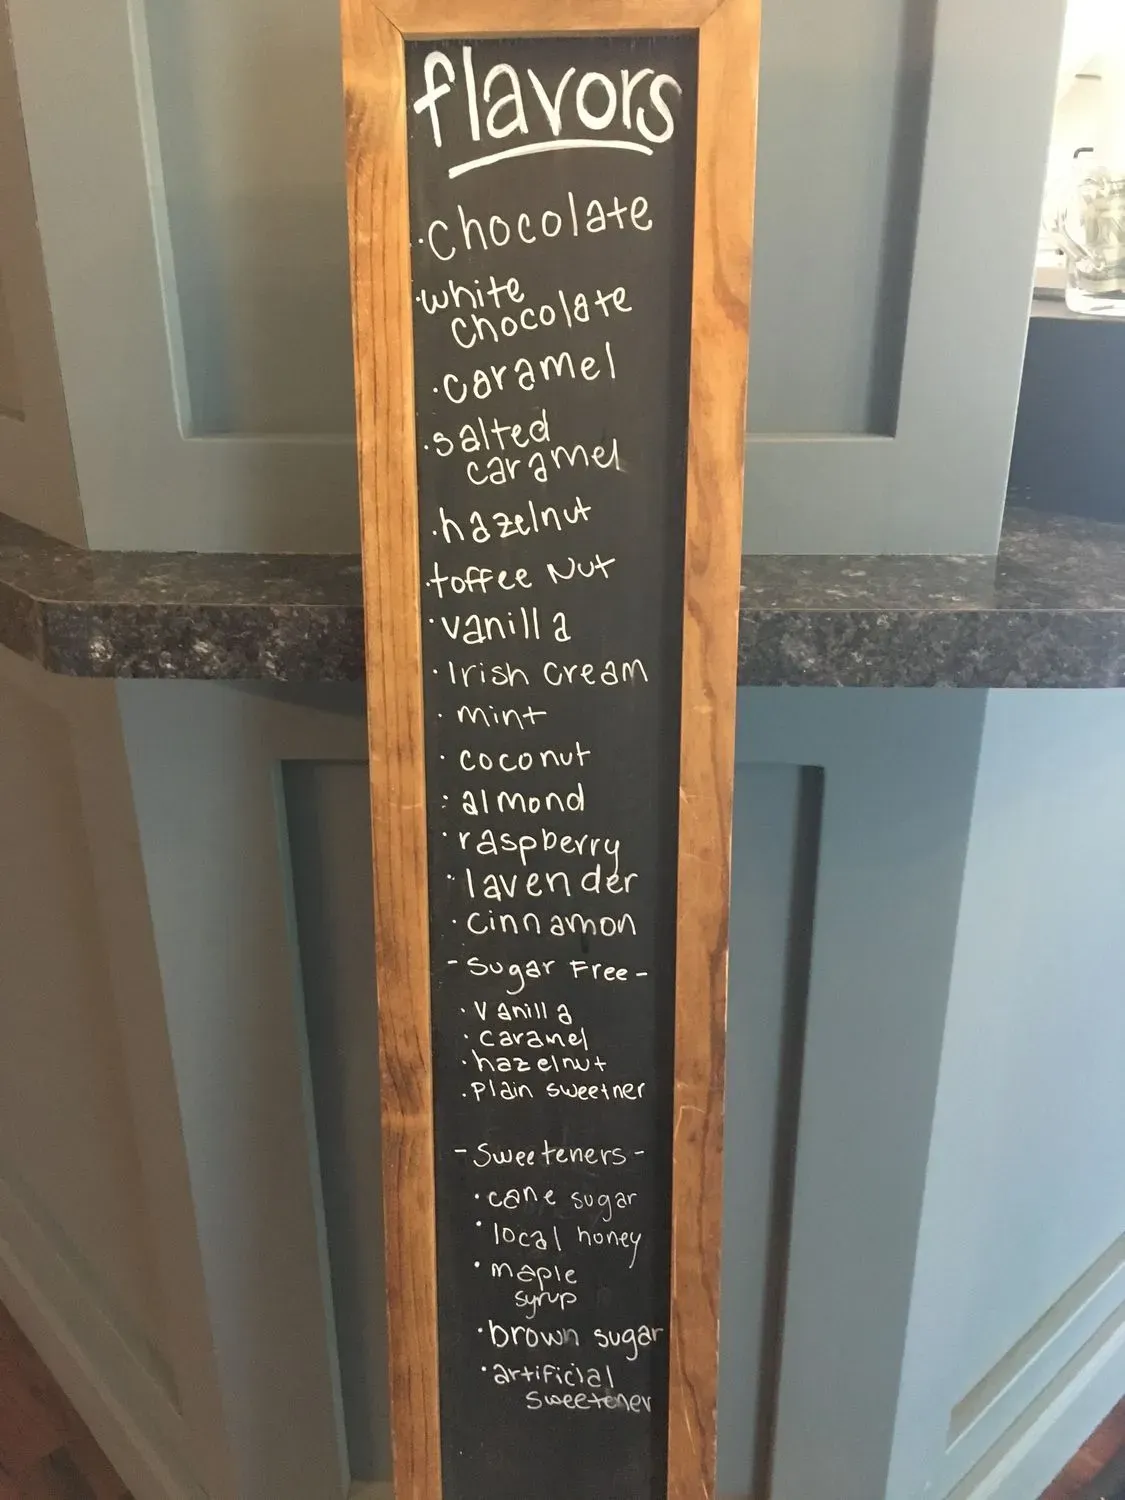 flavors
· Chocolate
· white
chocolate
· caramel
· salted
caramel
· hazelnut
· toffee Nut
· vanilla
· Irish Cream
· mint
· coconut
· almond
· raspberry
· lavender
· cinnamon
- Sugar Free -
· Vanilla
· caramel
· hazelnut
· Plain sweetner
- Sweeteners -
· cane sugar
· local honey
· maple
syrup
· brown sugar
· artificial
sweetener